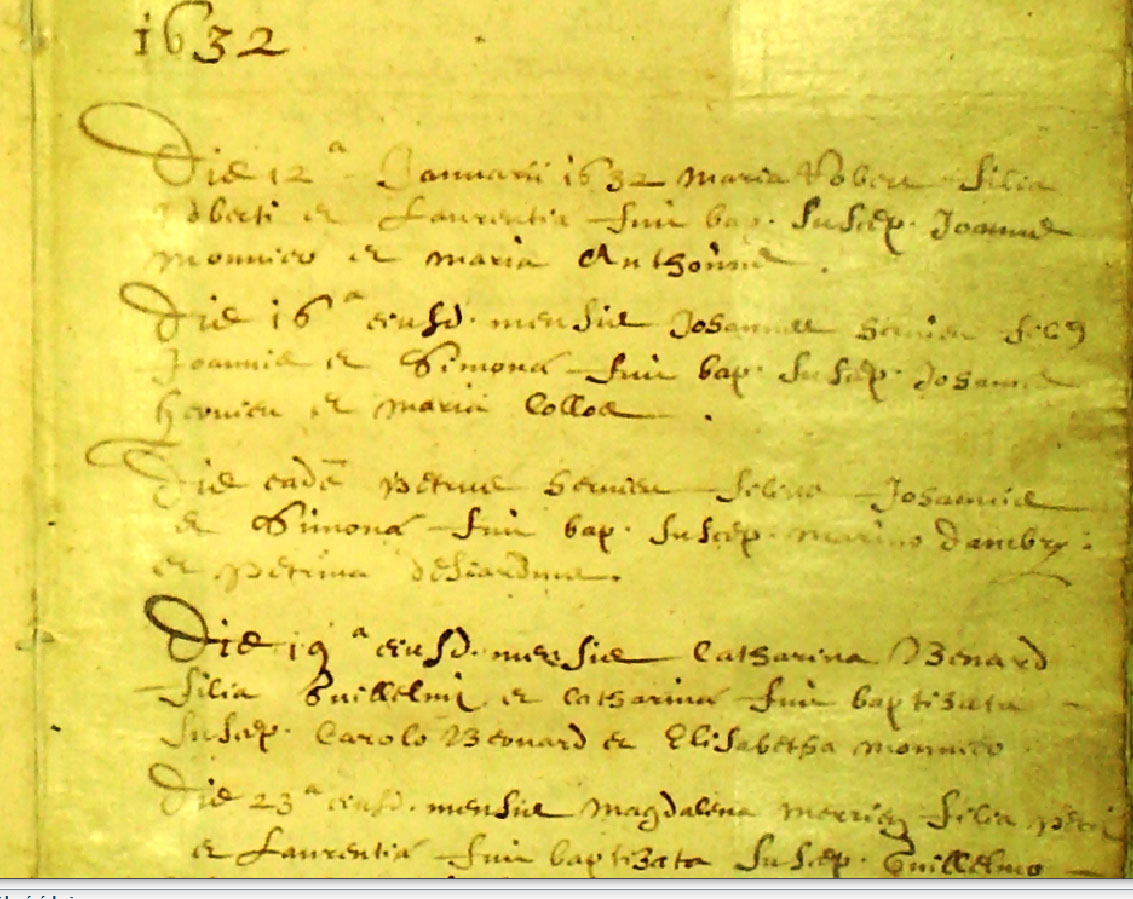 1632
Die 12a Januarii 1632 Maria Robert filia
Roberti et Laurentia fuit bap. suscep. Joanne
monnico et maria Anthoine.
Die 16a eiusd. mensis Johannes fili9
Joannis et Simona fuit bap. suscep. Johanne
et maria Colloe.
Die eadē petrus filius Johannis
et Simona fuit bap. suscep. marino dambry
et petrina
Die 19a eiusd. mensis Catharina Benard
filia Guillelmi et Catharina fuit baptizata
suscep. Carolo Benard et Elisabetha monnico
Die 23a eiusd. mensis magdalena filia petri
et Laurentia fuit baptizata suscep. Guillelmo